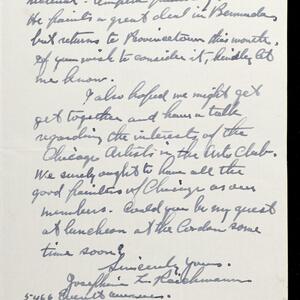 He paints a great deal in Bermuda
but returns to Provincetown this month.
If you wish to consider it, kindly let
me know.
I also hoped we might get
get together and have a talk
regarding the interests of the
Chicago Artists in the Arts Club.
We surely ought to have all the
good painters of Chicago as our
members. Could you be my guest
at luncheon at the Cordon some
time soon?
Sincerely yours.
Josephine L. Reichmann
5466 Everett avenue.